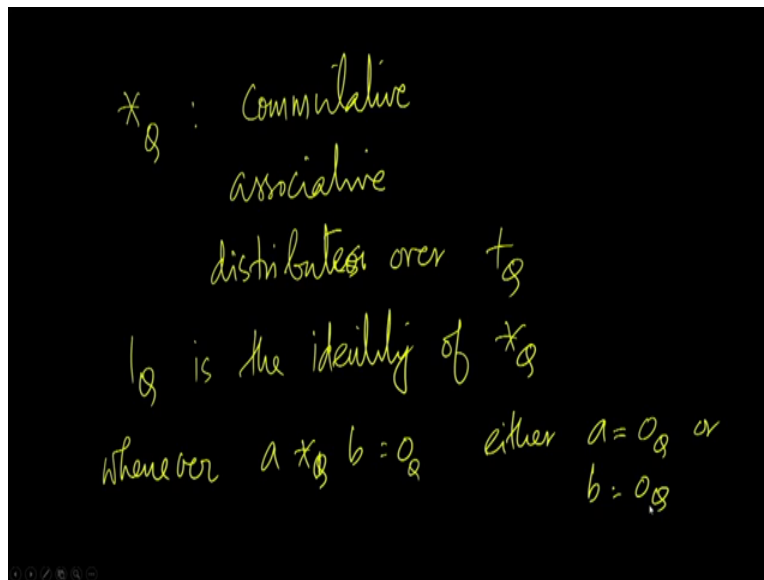 *Q : Commutative
associative
distributes over +Q
1Q is the identity of *Q
whenever a *Q b = 0Q either a = 0Q or
b = 0Q